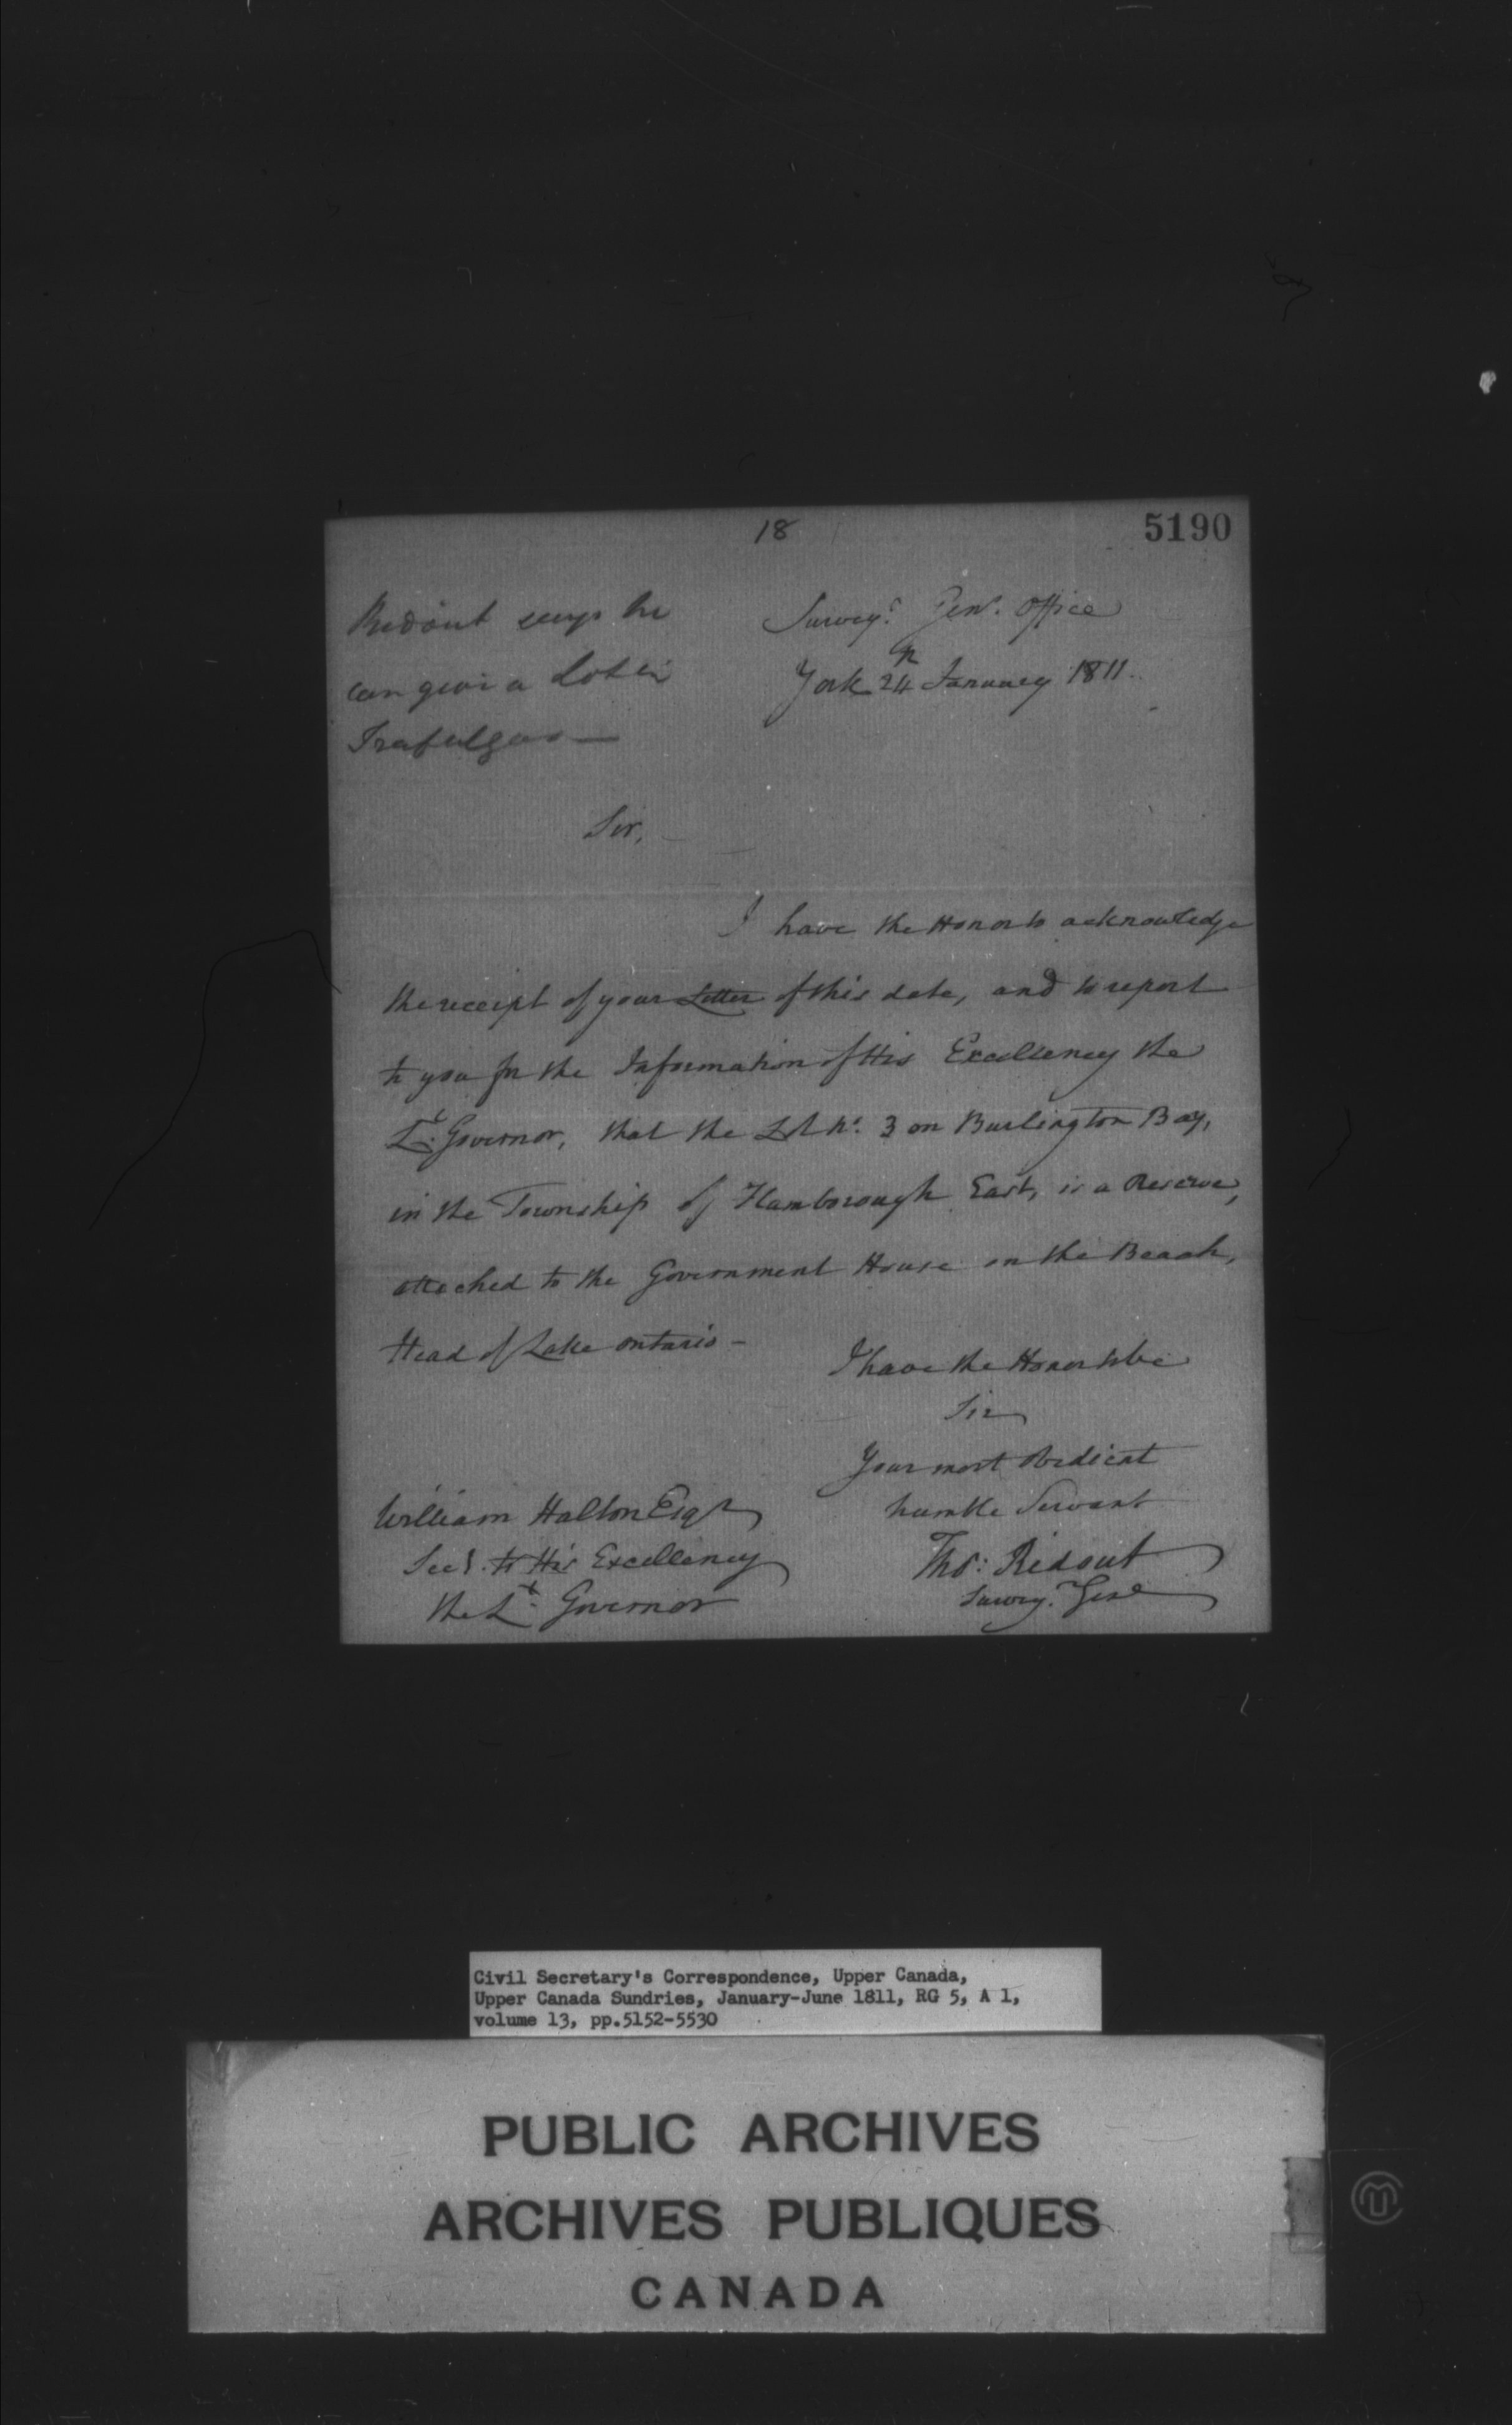 18
5190
Ridout says he
can give a Lot in
Trafalgar —
Survey.r Genl. Office
York 24th January 1811.
Sir,
I have the Honor to acknowledge
the receipt of your Letter of this date, and to report
to you for the Information of His Excellency the
Lt. Governor, that the Lot No. 3 on Burlington Bay,
in the Township of Flamborough East, is a Reserve,
attached to the Government House on the Beach,
Head of Lake Ontario –
I have the Honor to be
Sir
Your most Obedient
humble Servant
Thos: Ridout
Survey. Genl
William Halton Esqr
Secy. to His Excellency
the Lt. Governor
Civil Secretary's Correspondence, Upper Canada,
Upper Canada Sundries, January-June 1811, RG 5, A 1,
volume 13, pp.5152-5530
PUBLIC ARCHIVES
ARCHIVES PUBLIQUES
CANADA